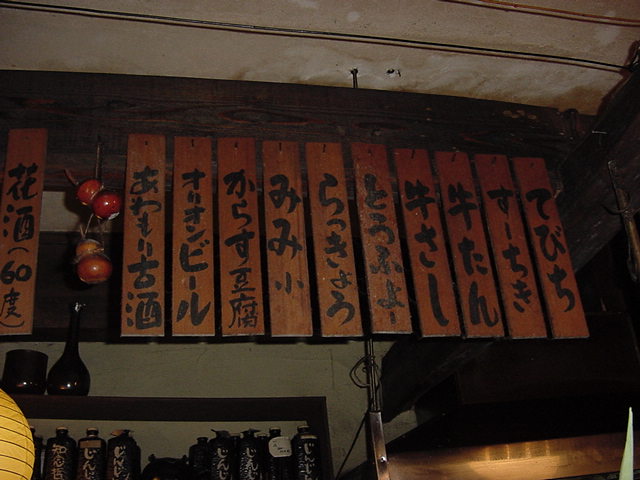 てびち
すーちき
牛たん
牛さし
とうふよー
らっきょう
みみ小
からす豆腐
オリオンビール
あわもり古酒
花酒(60度)